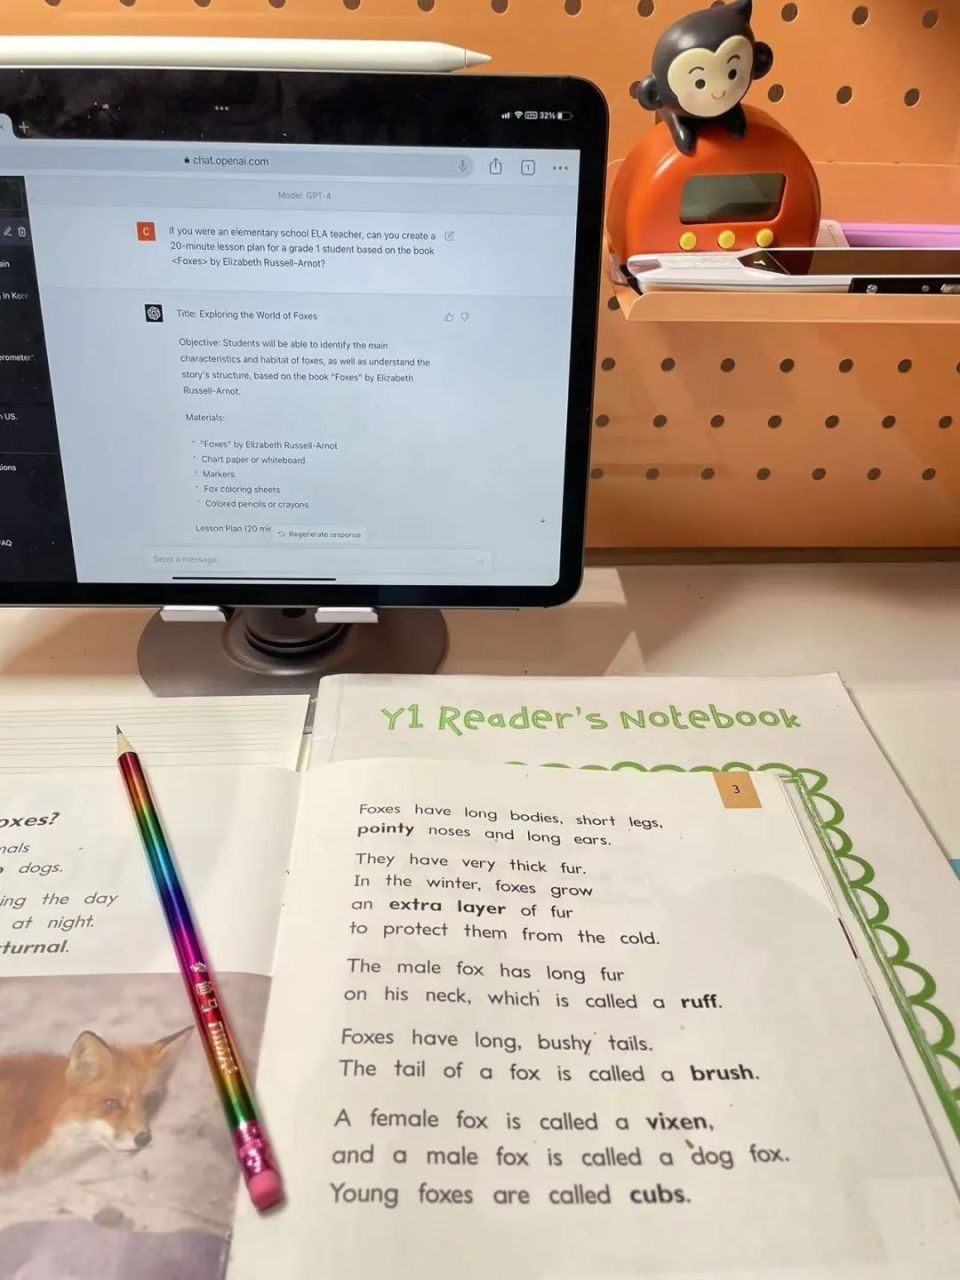 32%
chat.openai.com
1
Model: GPT-4
C
If you were an elementary school ELA teacher, can you create a
20-minute lesson plan for a grade 1 student based on the book
<Foxes> by Elizabeth Russell-Arnot?
in Kore
erometer".
US.
FAQ
Title: Exploring the World of Foxes
Objective: Students will be able to identify the main
characteristics and habitat of foxes, as well as understand the
story's structure, based on the book "Foxes" by Elizabeth
Russell-Arnot.
Materials:
"Foxes" by Elizabeth Russell-Arnot
Chart paper or whiteboard
Markers
Fox coloring sheets
Colored pencils or crayons
Lesson Plan (20 min
Regenerate response
Send a message...
Y1 Reader's Notebook
oxes?
mals
dogs.
ing the day
at night.
turnal.
3
Foxes have long bodies, short legs,
pointy noses and long ears.
They have very thick fur.
In the winter, foxes grow
an extra layer of fur
to protect them from the cold.
The male fox has long fur
on his neck, which is called a ruff.
Foxes have long, bushy tails.
The tail of a fox is called a brush.
A female fox is called a vixen,
and a male fox is called a dog fox.
Young foxes are called cubs.